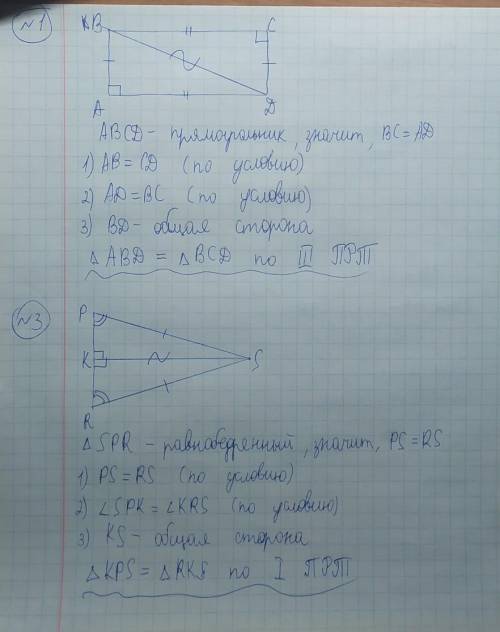 №1
B C
A D
ABCD - прямоугольник, значит, BC = AD
1) AB = CD (по условию)
2) AD = BC (по условию)
3) BD - общая сторона
△ABD = △BCD по III ПРТ
№3
P
K S
R
△SPR - равнобедренный, значит, PS = RS
1) PS = RS (по условию)
2) ∠SPK = ∠KRS (по условию)
3) KS - общая сторона
△KPS = △RKS по I ПРТ